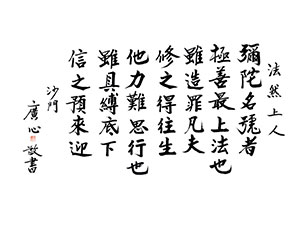 法然上人
彌陀名號者
極善最上法也
雖造罪凡夫
修之得往生
他力難思行也
雖具縛底下
信之預來迎
沙門
廣心敬書